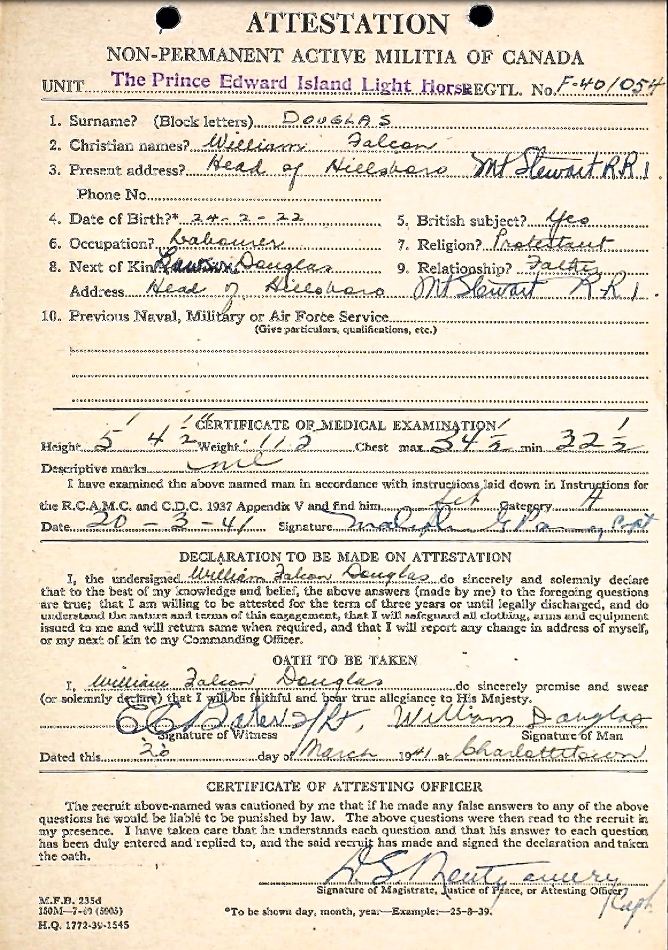 ATTESTATION
NON-PERMANENT ACTIVE MILITIA OF CANADA
UNIT The Prince Edward Island Light Horse REGTL. No. F-401054
1. Surname? (Block letters) DOUGLAS
2. Christian names? William Falcon
3. Present address? Head of Hillsboro Mt Stewart R R 1.
Phone No.
4. Date of Birth?* 24-2-22 5. British subject? Yes
6. Occupation? Labourer 7. Religion? Protestant
8. Next of Kin Douglas 9. Relationship? Father
Address Head of Hillsboro Mt Stewart R R 1.
10. Previous Naval, Military or Air Force Service
(Give particulars, qualifications, etc.)
CERTIFICATE OF MEDICAL EXAMINATION
Height 5' 4 1/2" Weight 112 Chest max. 34 1/2 min 32 1/2
Descriptive marks nil
I have examined the above named man in accordance with instructions laid down in Instructions for
the R.C.A.M.C. and C.D.C. 1937 Appendix V and find him fit Category A
Date 20-3-41 Signature Capt
DECLARATION TO BE MADE ON ATTESTATION
I, the undersigned William Falcon Douglas do sincerely and solemnly declare
that to the best of my knowledge and belief, the above answers (made by me) to the foregoing questions
are true; that I am willing to be attested for the term of three years or until legally discharged, and do
understand the nature and terms of this engagement, that I will safeguard all clothing, arms and equipment
issued to me and will return same when required, and that I will report any change in address of myself,
or my next of kin to my Commanding Officer.
OATH TO BE TAKEN
I, William Falcon Douglas do sincerely promise and swear
(or solemnly declare) that I will be faithful and bear true allegiance to His Majesty.
William Douglas
Signature of Witness Signature of Man
Dated this 20 day of March 1941 at Charlottetown
CERTIFICATE OF ATTESTING OFFICER
The recruit above-named was cautioned by me that if he made any false answers to any of the above
questions he would be liable to be punished by law. The above questions were then read to the recruit in
my presence. I have taken care that he understands each question and that his answer to each question
has been duly entered and replied to, and the said recruit has made and signed the declaration and taken
the oath.
Montgomery
Signature of Magistrate, Justice of Peace, or Attesting Officer
Capt
M.F.B. 235d
150M—7-40 (5005)
H.Q. 1772-39-1545
*To be shown day, month, year—Example:—25-8-39.